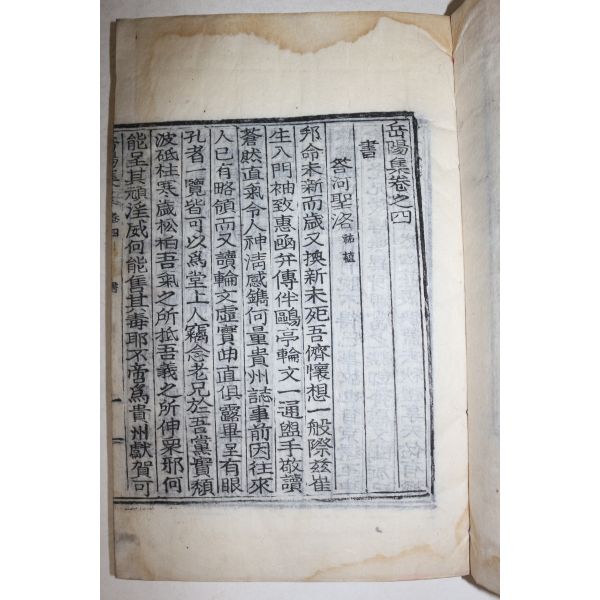 岳陽集卷之四
書
答河聖洛 祐植
邦命未新而歲又換新未死吾儕懷想一般際玆崔
生入門袖致惠函弁傳伴鷗亭輪文一通盥手敬讀
蒼然直氣令人神淸感鐫何量貴州誌事前因往來
人已有略領而又讀輪文虛實曲直俱露畢呈有眼
孔者一覽皆可以爲堂上人竊念老兄於吾黨實頹
波砥柱寒歲松柏吾氣之所抵吾義之所伸衆邪何
能呈其頑淫威何能售其毒耶不啻爲貴州獻賀可
岳陽集 卷四 書 一